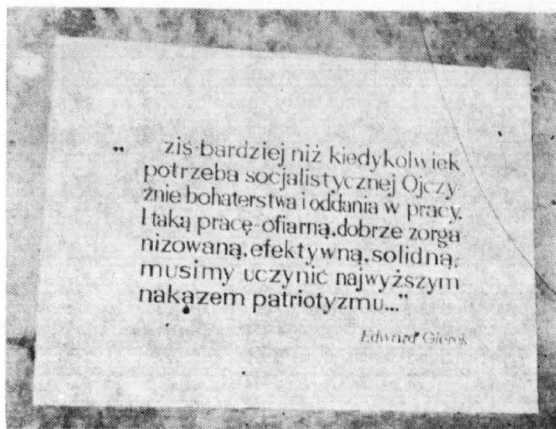 „ zis bardziej niż kiedykolwiek
potrzeba socjalistycznej Ojczy
źnie bohaterstwa i oddania w pracy.
I taką pracę-ofiarną, dobrze zorga
nizowaną, efektywną, solidną,
musimy uczynić najwyższym
nakazem patriotyzmu..."
Edward Gierek